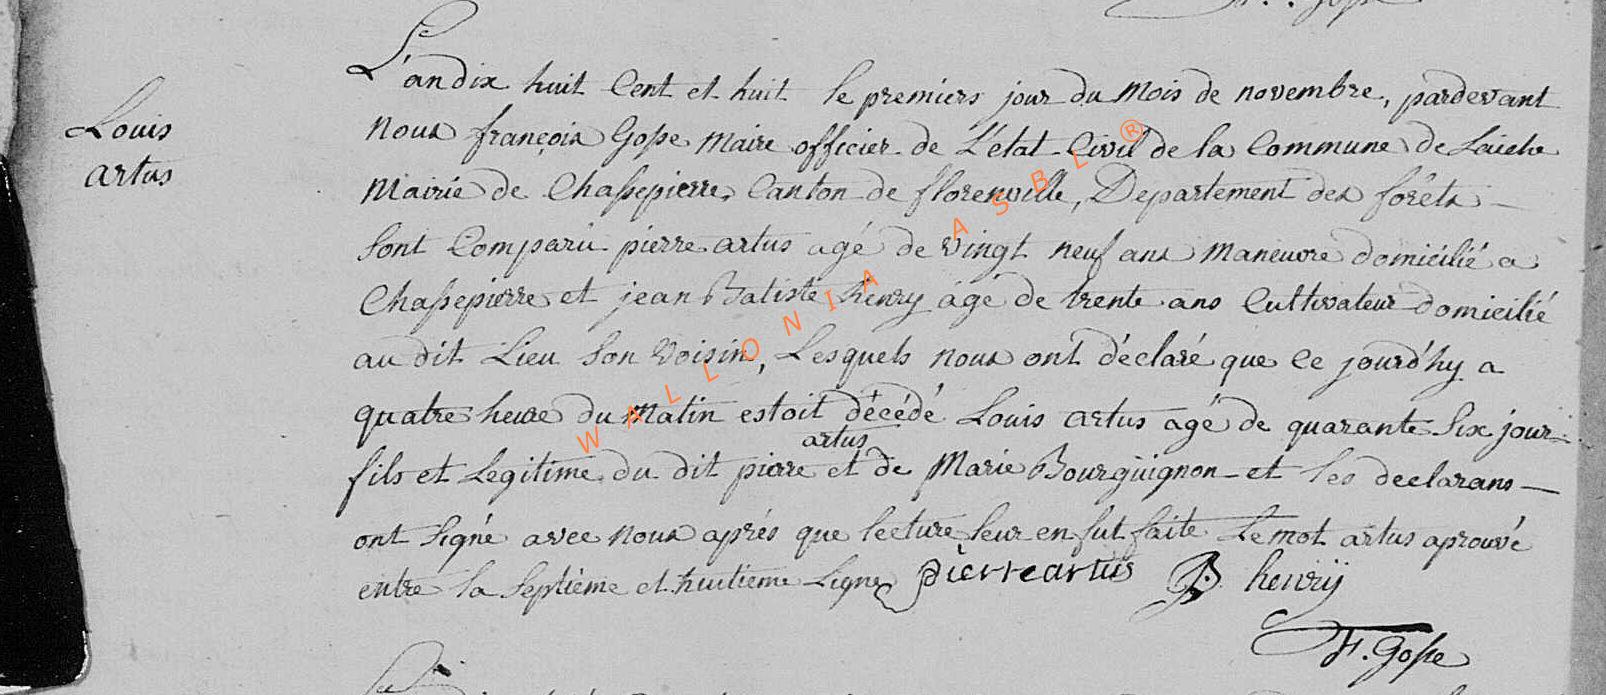 F. Gosse
L'an dix huit Cent et huit le premiers jour du Mois de novembre, pardevant
Louis
artus
nous françois Gosse Maire officier de L'état Civil de la Commune de Laiche
Mairie de Chassepierre, Canton de florenville, Departement des forêts —
Sont Comparu pierre artus agé de vingt neuf ans maneuvre domicilié a
Chassepierre et jean Batiste henry agé de trente ans Cultivateur domicilié
au dit Lieu Son Voisin, Lesquels nous ont déclaré que Ce jourd'hy a
quatre heure du Matin estoit décédé Louis Artus agé de quarante Six jour
artus
fils et Legitime du dit pierre et de Marie Bourgüignon et les declarans —
ont Signé avec nous aprés que lecture leur en fut faite Le mot artus aprouvé
entre la Septième et huitieme Ligne pierre artus JB. henrÿ
F. Gosse
WALLONIA ASBL ®